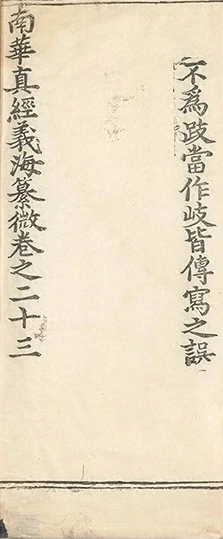 不為跂當作岐皆傳寫之誤
南華真經義海纂微卷之二十三